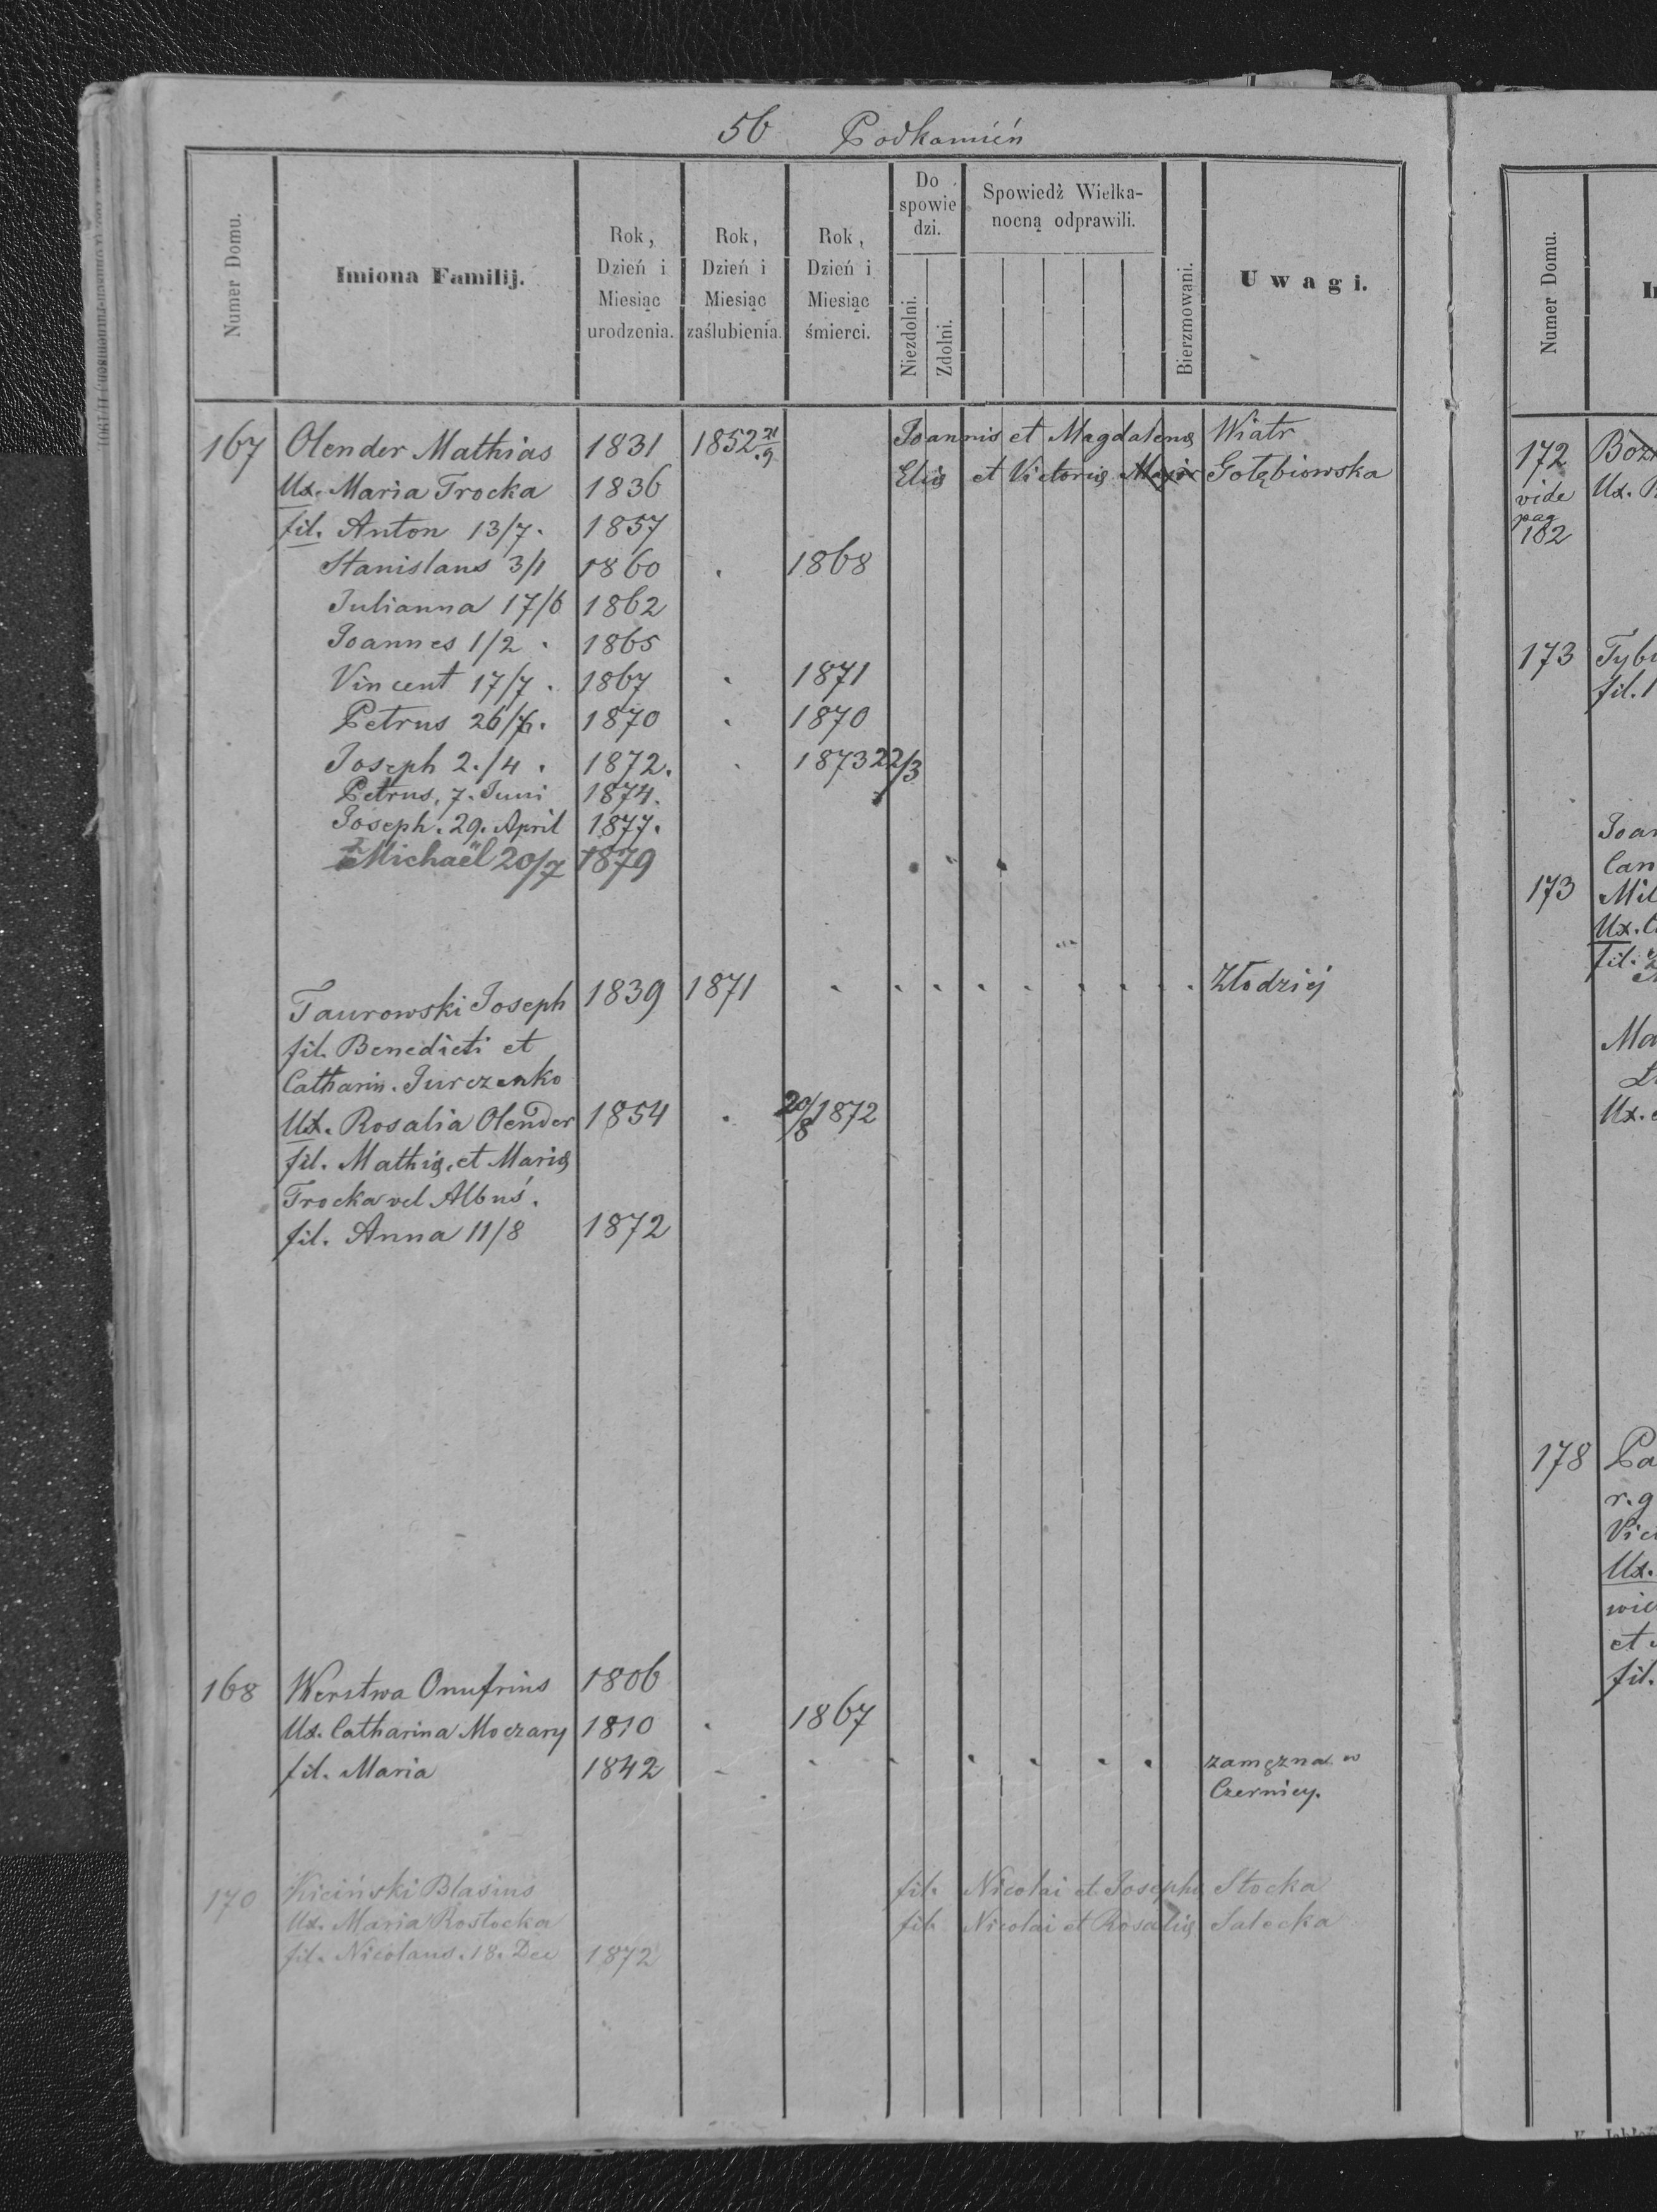 56 Podkamień
Numer Domu.
Imiona Familij.
Rok, Dzień i Miesiąc urodzenia.
Rok, Dzień i Miesiąc zaślubienia.
Rok, Dzień i Miesiąc śmierci.
Do spowiedzi.
Niezdolni.
Zdolni.
Spowiedź Wielkanocną odprawili.
Bierzmowani.
Uwagi.
167 Olender Mathias 1831 1852 21/9 Joannis et Magdalenę Wiatr
Ux. Maria Trocka 1836 Elię et Victorię Gołębiowska
fil. Anton 13/7. 1857
Stanislaus 3/1 1860 . 1868
Julianna 17/6 1862
Joannes 1/2 . 1865
Vincent 17/7 . 1867 . 1871
Petrus 26/6. 1870 . 1870
Joseph 2./4 . 1872. . 1873 22/3
Petrus, 7. Juni 1874.
Joseph. 29. April 1877.
Michaël 20/7 1879
Taurowski Joseph 1839 1871 . . . . . . . . . Złodzięj
fil. Benedicti et
Catharin. Jurczenko
Ux. Rosalia Olender 1854 . 20/8 1872
fil. Mathię. et Marię
Trocka vel Albuś.
fil. Anna 11/8 1872
168 Werstwa Onufrius 1806
Ux. Catharina Moczary 1810 . 1867
fil. Maria 1842 . . . . . . . zamężna w
Czernicy.
170 Kiciński Blasius fil. Nicolai et Josephę Stocka
Ux. Maria Rostocka fil. Nicolai et Rosalię Salecka
fil. Nicolaus. 18. Dec 1872
Numer Domu.
172
vide Ux.
pag
182
173 Tyb
fil.
Joan
Can
173 Mil
Ux. C
fil.
Ma
Ux.
178 Pa
r. g
Vic
Ux.
wic
et
fil.